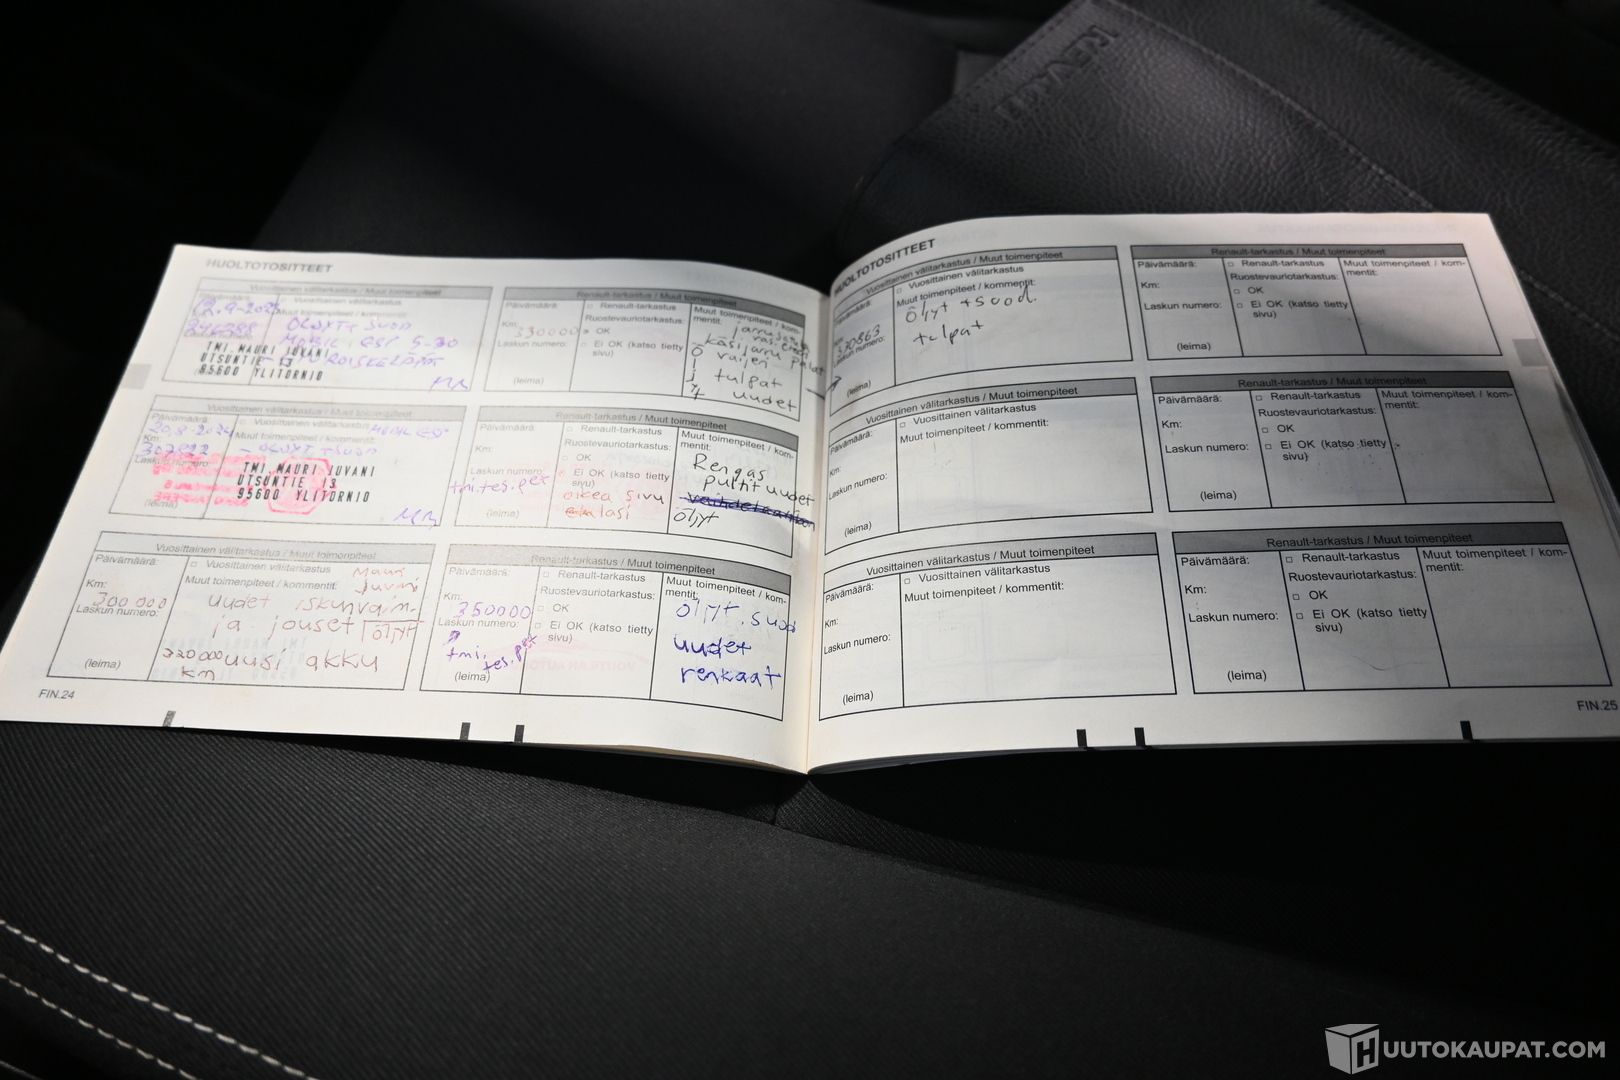 RENAULT
HUOLTOTOSITTEET
Vuosittainen välitarkastus / Muut toimenpiteet
Päivämäärä:
□ Vuosittainen välitarkastus
Muut toimenpiteet / kommentit:
TMI.MAURI JUVANI
UTSUNTIE 13
95600 YLITORNIO
Renault-tarkastus / Muut toimenpiteet
Päivämäärä:
Km:
330000
Laskun numero:
(leima)
□ Renault-tarkastus
Ruostevauriotarkastus:
OK
□ Ei OK (katso tietty
sivu)
Muut toimenpiteet / kom-
mentit:
käsijarru
vaijeri
tulpat
uudet
Vuosittainen välitarkastus / Muut toimenpiteet
Päivämäärä:
20.8.2024
Km:
Laskun numero:
(leima)
□ Vuosittainen välitarkastus
Muut toimenpiteet / kommentit:
TMI.MAURI JUVANI
UTSUNTIE 13
95600 YLITORNIO
Renault-tarkastus / Muut toimenpiteet
Päivämäärä:
Km:
Laskun numero:
tmi.tes.pex
(leima)
□ Renault-tarkastus
Ruostevauriotarkastus:
□ OK
Ei OK (katso tietty
sivu)
oikea sivu
lasi
Muut toimenpiteet / kom-
mentit:
Rengas
pultit uudet
öljyt
Vuosittainen välitarkastus / Muut toimenpiteet
Päivämäärä:
Km:
300 000
Laskun numero:
(leima)
□ Vuosittainen välitarkastus
Muut toimenpiteet / kommentit:
Mauri
Juvani
uudet iskunvaim.
ja jouset öljyt
320000 uusi akku
km
Renault-tarkastus / Muut toimenpiteet
Päivämäärä:
Km:
350000
Laskun numero:
tmi.
tes.pex
(leima)
□ Renault-tarkastus
Ruostevauriotarkastus:
□ OK
□ Ei OK (katso tietty
sivu)
Muut toimenpiteet / kom-
mentit:
öljyt. suod
uudet
renkaat
FIN.24
HUOLTOTOSITTEET
Vuosittainen välitarkastus / Muut toimenpiteet
Päivämäärä:
370863
Laskun numero:
(leima)
□ Vuosittainen välitarkastus
Muut toimenpiteet / kommentit:
Öljyt + suod.
tulpat
Renault-tarkastus / Muut toimenpiteet
Päivämäärä:
Km:
Laskun numero:
(leima)
□ Renault-tarkastus
Ruostevauriotarkastus:
□ OK
□ Ei OK (katso tietty
sivu)
Muut toimenpiteet / kom-
mentit:
Vuosittainen välitarkastus / Muut toimenpiteet
Päivämäärä:
Km:
Laskun numero:
(leima)
□ Vuosittainen välitarkastus
Muut toimenpiteet / kommentit:
Renault-tarkastus / Muut toimenpiteet
Päivämäärä:
Km:
Laskun numero:
(leima)
□ Renault-tarkastus
Ruostevauriotarkastus:
□ OK
□ Ei OK (katso tietty
sivu)
Muut toimenpiteet / kom-
mentit:
Vuosittainen välitarkastus / Muut toimenpiteet
Päivämäärä:
Km:
Laskun numero:
(leima)
□ Vuosittainen välitarkastus
Muut toimenpiteet / kommentit:
Renault-tarkastus / Muut toimenpiteet
Päivämäärä:
Km:
Laskun numero:
(leima)
□ Renault-tarkastus
Ruostevauriotarkastus:
□ OK
□ Ei OK (katso tietty
sivu)
Muut toimenpiteet / kom-
mentit:
FIN.25
HUUTOKAUPAT.COM